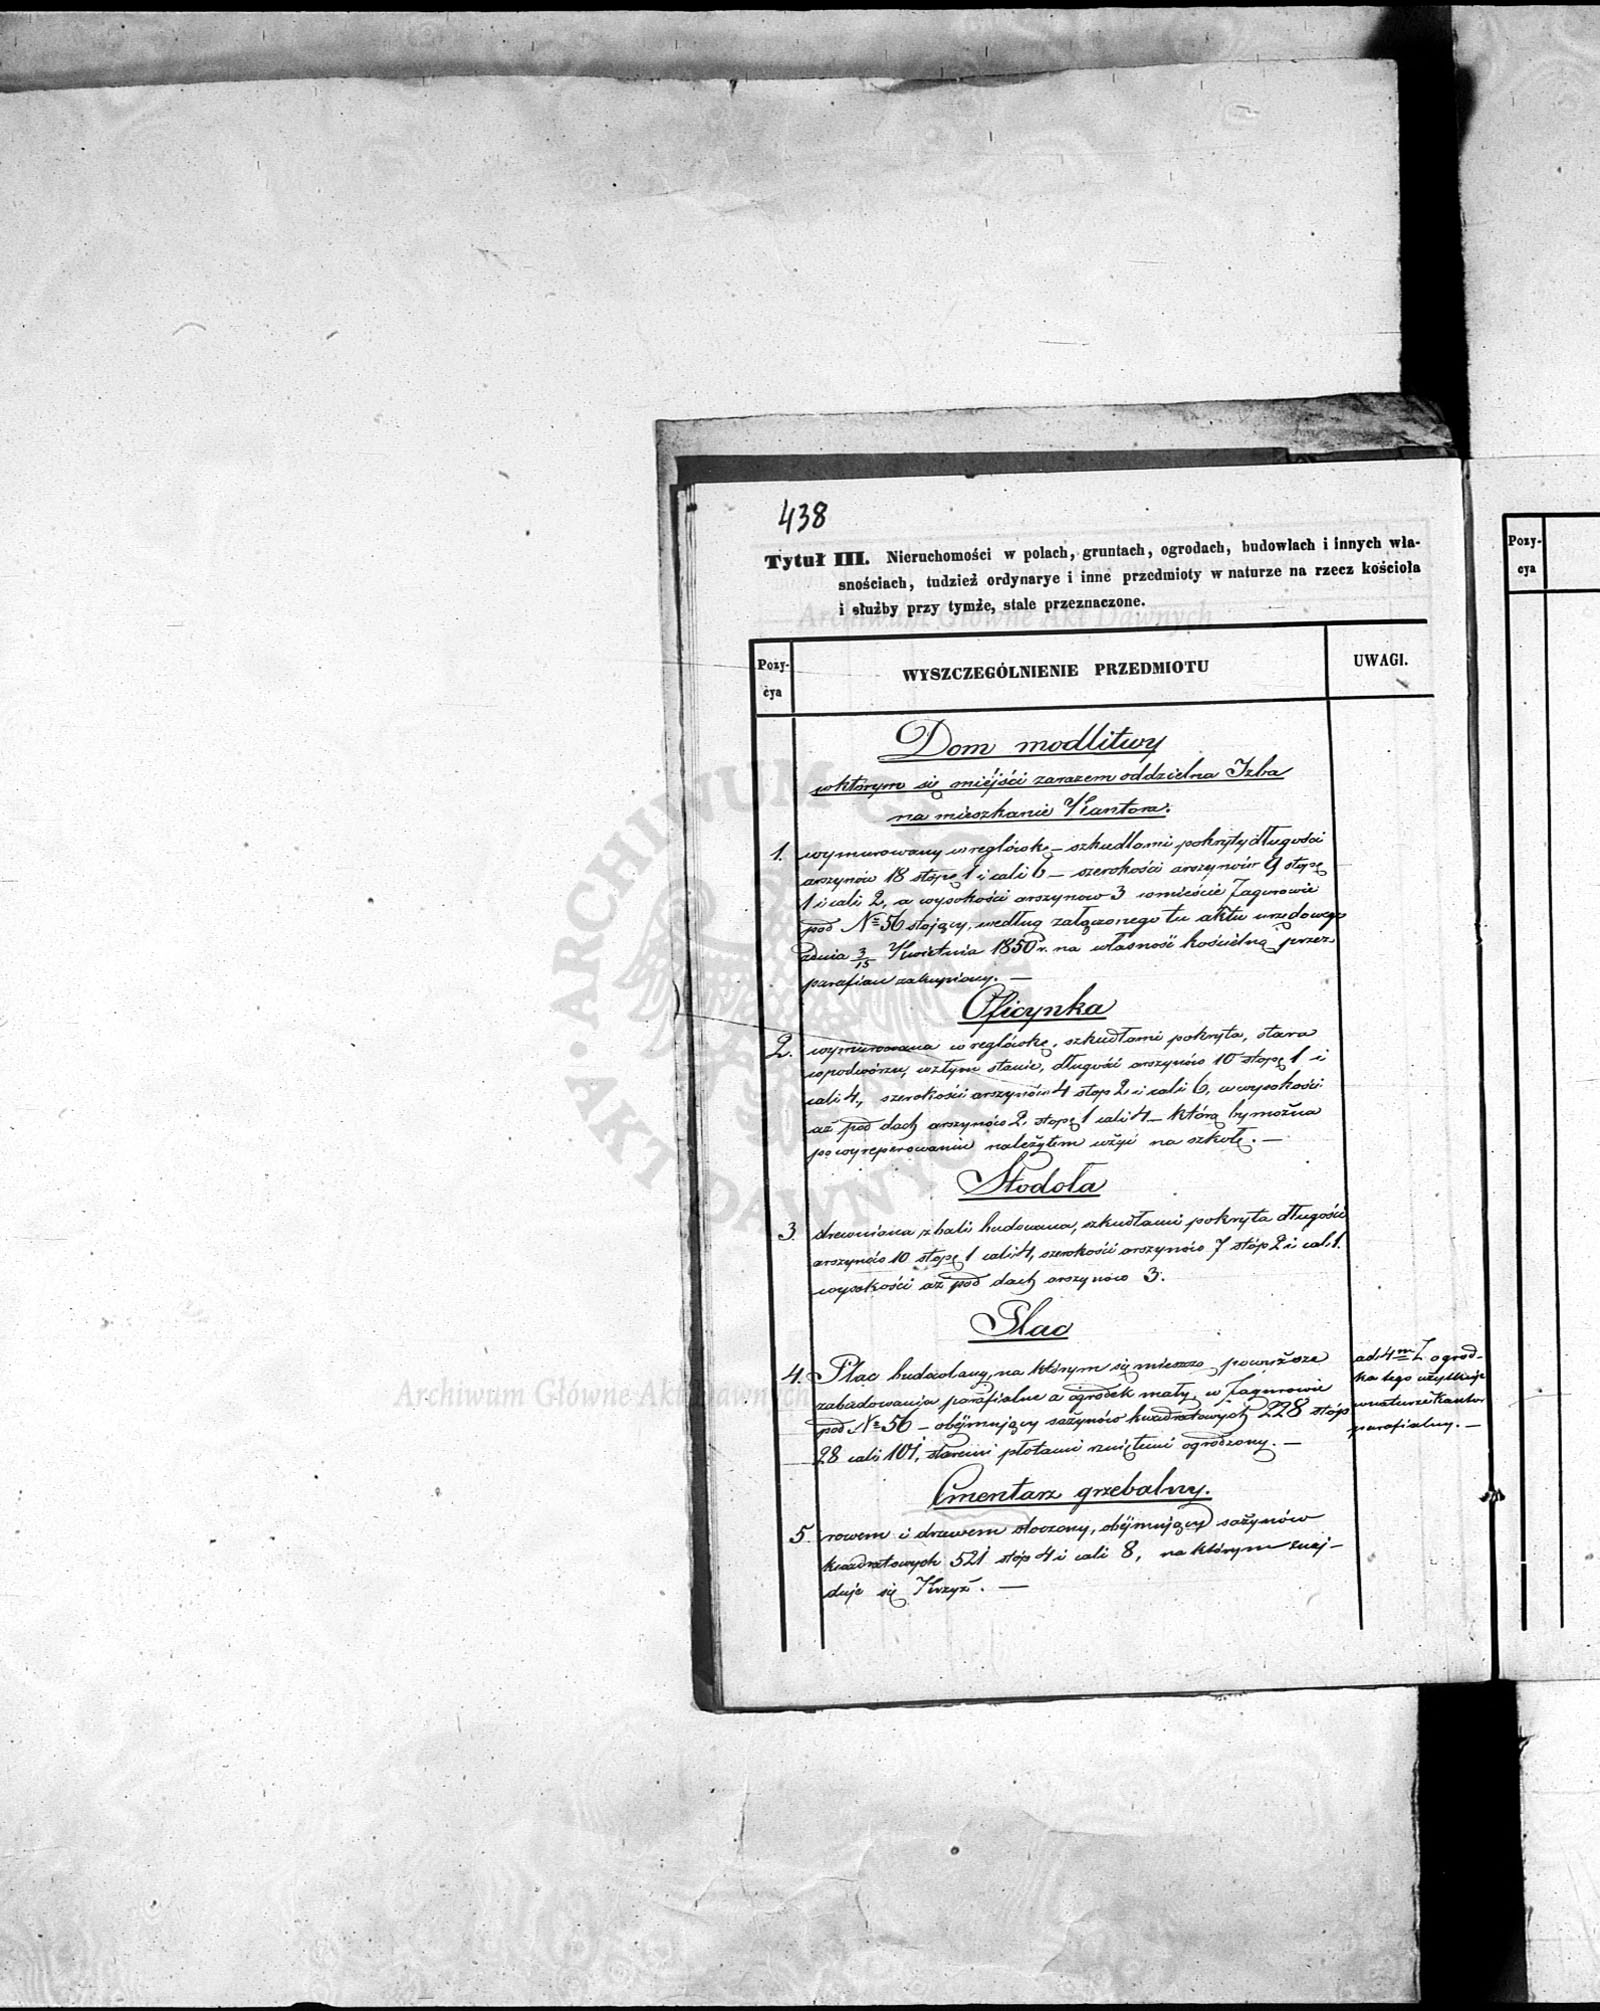 438
Tytuł III. Nieruchomości w polach, gruntach, ogrodach, budowlach i innych wła-
snościach, tudzież ordynarye i inne przedmioty w naturze na rzecz kościoła
i służby przy tymże, stale przeznaczone.
Archiwum Główne Akt Dawnych
Pozy-
cya
WYSZCZEGÓLNIENIE PRZEDMIOTU
UWAGI.
Pozy-
cya
Dom modlitwy
w którym się miéjści zarazem oddzielna Izba
na mieszkanie Kantora.
1. wymurowany w reglówkę – szkudlami pokryty długości
arszynów 18 stopę 1 i cali 6 – szerokości arszynów 9 stopę
1 i cali 2, a wysokości arszynow 3 w mieście Zagurowie
pod № 56 stojący, według załączonego tu aktu urzędowego
z dnia 3/15 Kwietnia 1850 r. na własność kościelną przez
parafian zakupiony. —
Oficynka
2. wymurowana w reglówkę, szkudłami pokryta, stara
w podwórzu, w złym stanie, długość arszynów 10 stopę 1 i
cali 4, szerokości arszynów 4 stop 2 i cali 6, w wysokości
aż pod dach arszynów 2, stopę 1 cali 4 – którą by można
po wyreperowaniu należytem użyć na szkołę. —
Stodoła
3. drewniana z bali budowana, szkudłami pokryta długości
arszynów 10 stopę 1 cali 4, szerokości arszynów 7 stóp 2 i cal 1.
wysokości aż pod dach arszynów 3.
Plac
4. Plac budowlany, na którym się mieszczą powyższe
zabudowania parafialne a ogródek mały, w Zagurowie
pod № 56 – obéjmujący sążynów kwadratowych 228 stóp
28 cali 101, staremi płotami rzniętemi ogrodzony. —
ad 4m Z ogród-
ka tego użytkuje
w naturze Kantor
parafialny. —
Archiwum Główne Akt Dawnych
Cmentarz grzebalny.
5. rowem i drzewem otoczony, obéjmujący sążynów
kwadratowych 521 stóp 4 i cali 8, na którym znaj-
duje się Krzyż. —
ARCHIWUM
AKT DAWNYCH